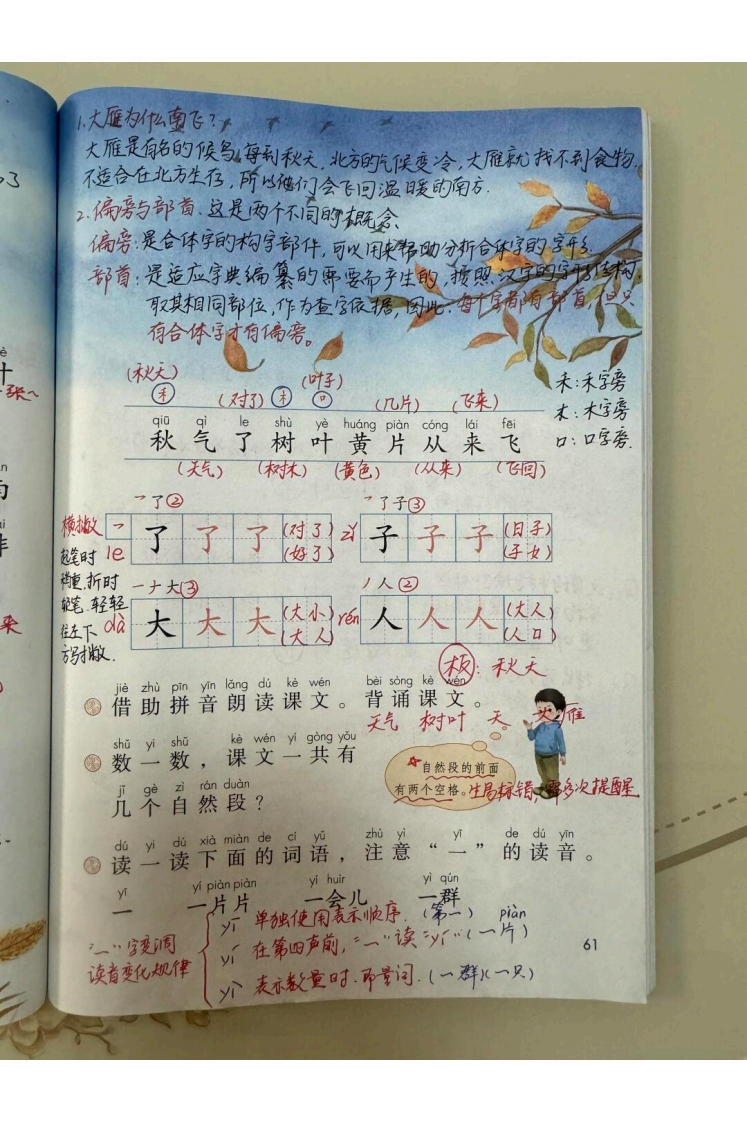 1.大雁为什么南飞？
大雁是有名的候鸟，每到秋天，北方的气候变冷，大雁就找不到食物，
不适合在北方生存，所以他们会飞回温暖的南方.
2.偏旁与部首.这是两个不同的概念
偏旁：是合体字的构字部件，可以用来帮助分析合体字的字形.
部首：是适应字典编纂的需要而产生的，按照汉字的字形结构
取其相同部位，作为查字依据，因此，每个字都有部首，但只
有合体字才有偏旁。
(秋天) (对了) (叶子) (几片) (飞来)
禾 木 口
禾：禾字旁
木：木字旁
口：口字旁.
qiū qì le shù yè huáng piàn cóng lái fēi
秋 气 了 树 叶 黄 片 从 来 飞
(天气) (树木) (黄色) (从来) (飞回)
㇇了② ㇇了子③
横撇 ㇇ le 了 了 了 (对了) (好了)
zǐ 子 子 子 (日子) (子女)
起笔时
稍重，折时
轻笔，轻轻
往左下
方撇.
一ナ大③ ノ人②
dà 大 大 大 (大小) (大人)
rén 人 人 人 (大人) (人口)
板：秋天
天气 树叶 天 大雁
jiè zhù pīn yīn lǎng dú kè wén bèi sòng kè wén
借助拼音朗读课文。背诵课文。
shǔ yi shǔ kè wén yí gòng yǒu
数一数，课文一共有
jǐ gè zì rán duàn
几个自然段？
自然段的前面
有两个空格。
生易标错，需多次提醒
dú yi dú xià miàn de cí yǔ zhù yì yī de dú yīn
读一读下面的词语，注意“一”的读音。
yī yí piàn piàn yí huìr yì qún
一 一片片 一会儿 一群
“一”字变调
读音变化规律
yī 单独使用表示顺序.(第一)
piàn
yí 在第四声前，“一”读“yí”(一片)
yì 表示数量时.即量词.(一群)(一只)
61